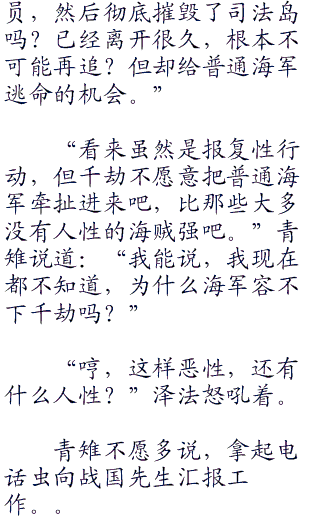 员，然后彻底摧毁了司法岛
吗？已经离开很久，根本不
可能再追？但却给普通海军
逃命的机会。”
“看来虽然是报复性行
动，但千劫不愿意把普通海
军牵扯进来吧，比那些大多
没有人性的海贼强吧。”青
雉说道：“我能说，我现在
都不知道，为什么海军容不
下千劫吗？”
“哼，这样恶性，还有
什么人性？”泽法怒吼着。
青雉不愿多说，拿起电
话虫向战国先生汇报工
作。。